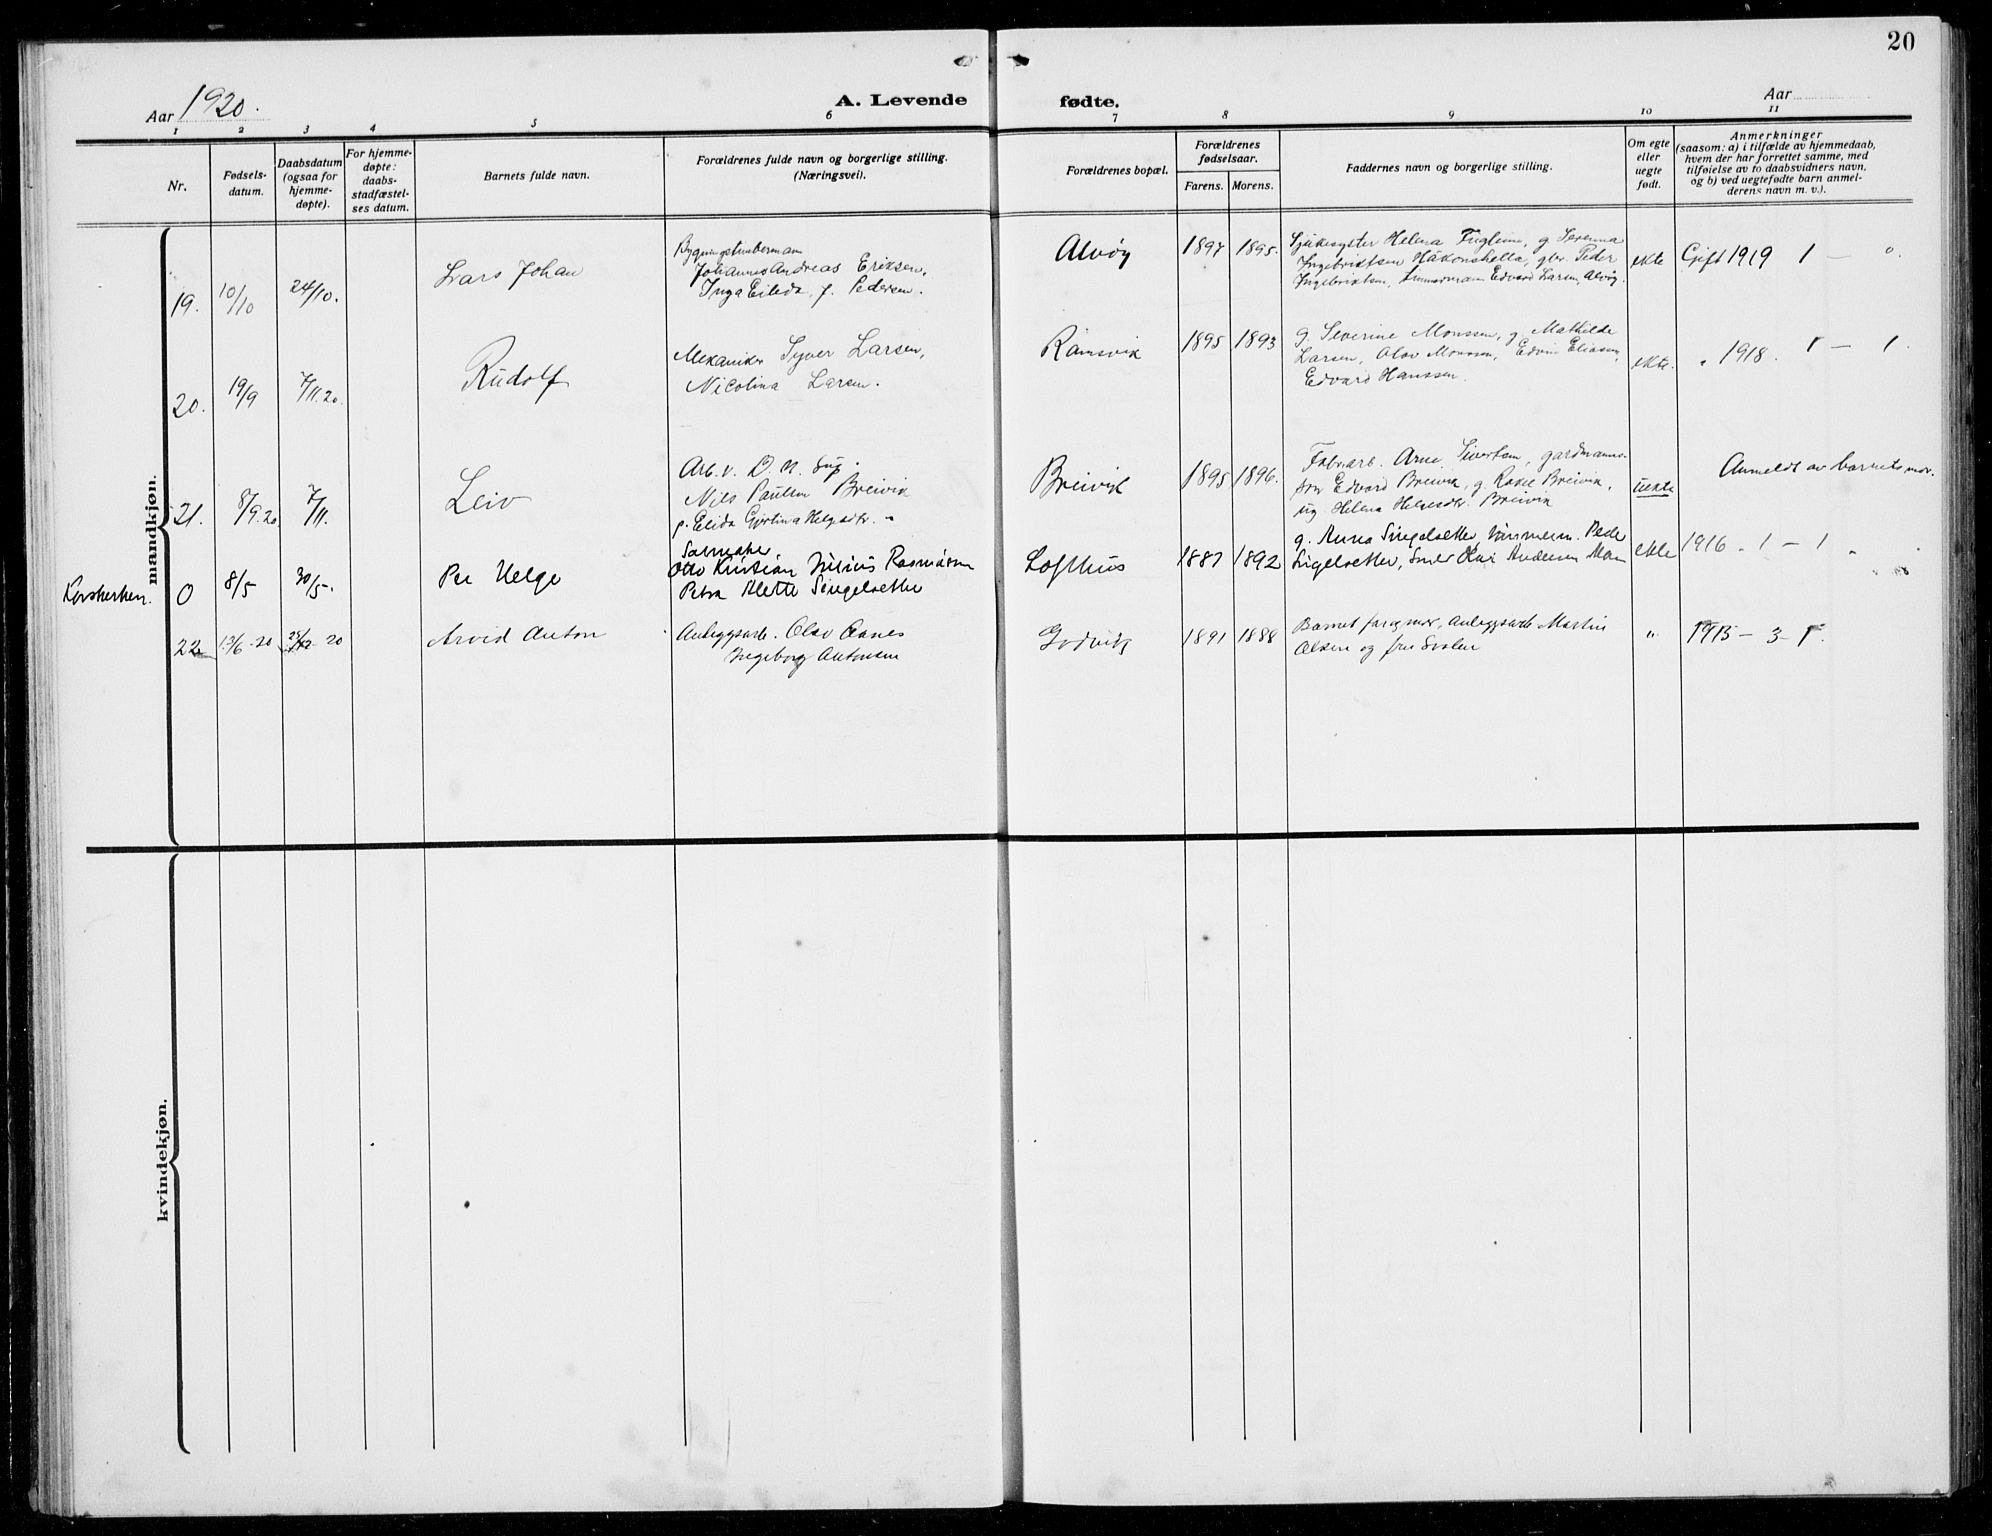 20
Aar 1920.
A. Levende
fødte.
Aar
1 2 3 4 5 6 7 8 9 10 11
Nr.
Fødsels-
datum.
Daabsdatum
(ogsaa for
hjemme-
døpte).
For hjemme-
døpte:
daabs-
stadfæstel-
ses datum.
Barnets fulde navn.
Forældrenes fulde navn og borgerlige stilling.
(Næringsvei).
Forældrenes bopæl.
Forældrenes
fødselsaar.
Farens. Morens.
Faddernes navn og borgerlige stilling.
Om egte
eller
uegte
født.
Anmerkninger
(saasom: a) i tilfælde av hjemmedaab,
hvem der har forrettet samme, med
tilføielse av to daabsvidners navn,
og b) ved uegtefødte barn anmel-
derens navn m. v.).
mandkjøn.
19. 10/10 24/10.
Lars Johan
Bygningstømbermann
Johannes Andreas Eriksen,
Inga Elida, f. Pedersen.
Alvøy
1897 1895.
Sjukesyster Helena Fuglem, g. Severina
Ingebriktsen Håkonshella, gbr. Peder
Ingebriktsen, Edvard Larsen, Alvøy.
ekte
Gift 1919 1 — 0.
20. 19/9 7/11.20.
Rudolf
Mekaniker Syver Larsen,
Nicolina Larsen.
Ramsvik
1895 1893
g. Severine Monssen, g. Mathilde
Larsen, Olav Monssen, Edvin Eliasen,
Edvard Hanssen.
ekte.
" 1918. 1 — 1.
21. 8/9.20 7/11.
Leiv
Arb. v. D. N.
Nils Paulsen Breivik
p. Elida Gjertina Helgesdtr. "
Breivik
1895 1896.
Fabr.arb. Arne Sivertsen, gardmanns-
son Edvard Breivik, g. Rakel Breivik,
ug. Helena Helgesdtr. Breivik
uekte
Anmeldt av barnets mor.
Korskirken. 0 8/5 30/5.
Per Helge
Salmaker
Otto Kristian Julius Rasmussen
Petra Alette Singelsetter
Lofthus
1887 1892
g. Anna Singelsetter, tømmerm. Peder
Singelsetter, Andersen
ekte
1916 - 1 — 1
22 13/6-20 20
Arvid Anton
Anleggsarb. Olav Aanes
Ingeborg Antonsen
Godvik
1891 1888
Barnet far og mor, Anleggsarb Martin
Olsen og fru
"
1915 — 3 — 1.
kvindekjøn.